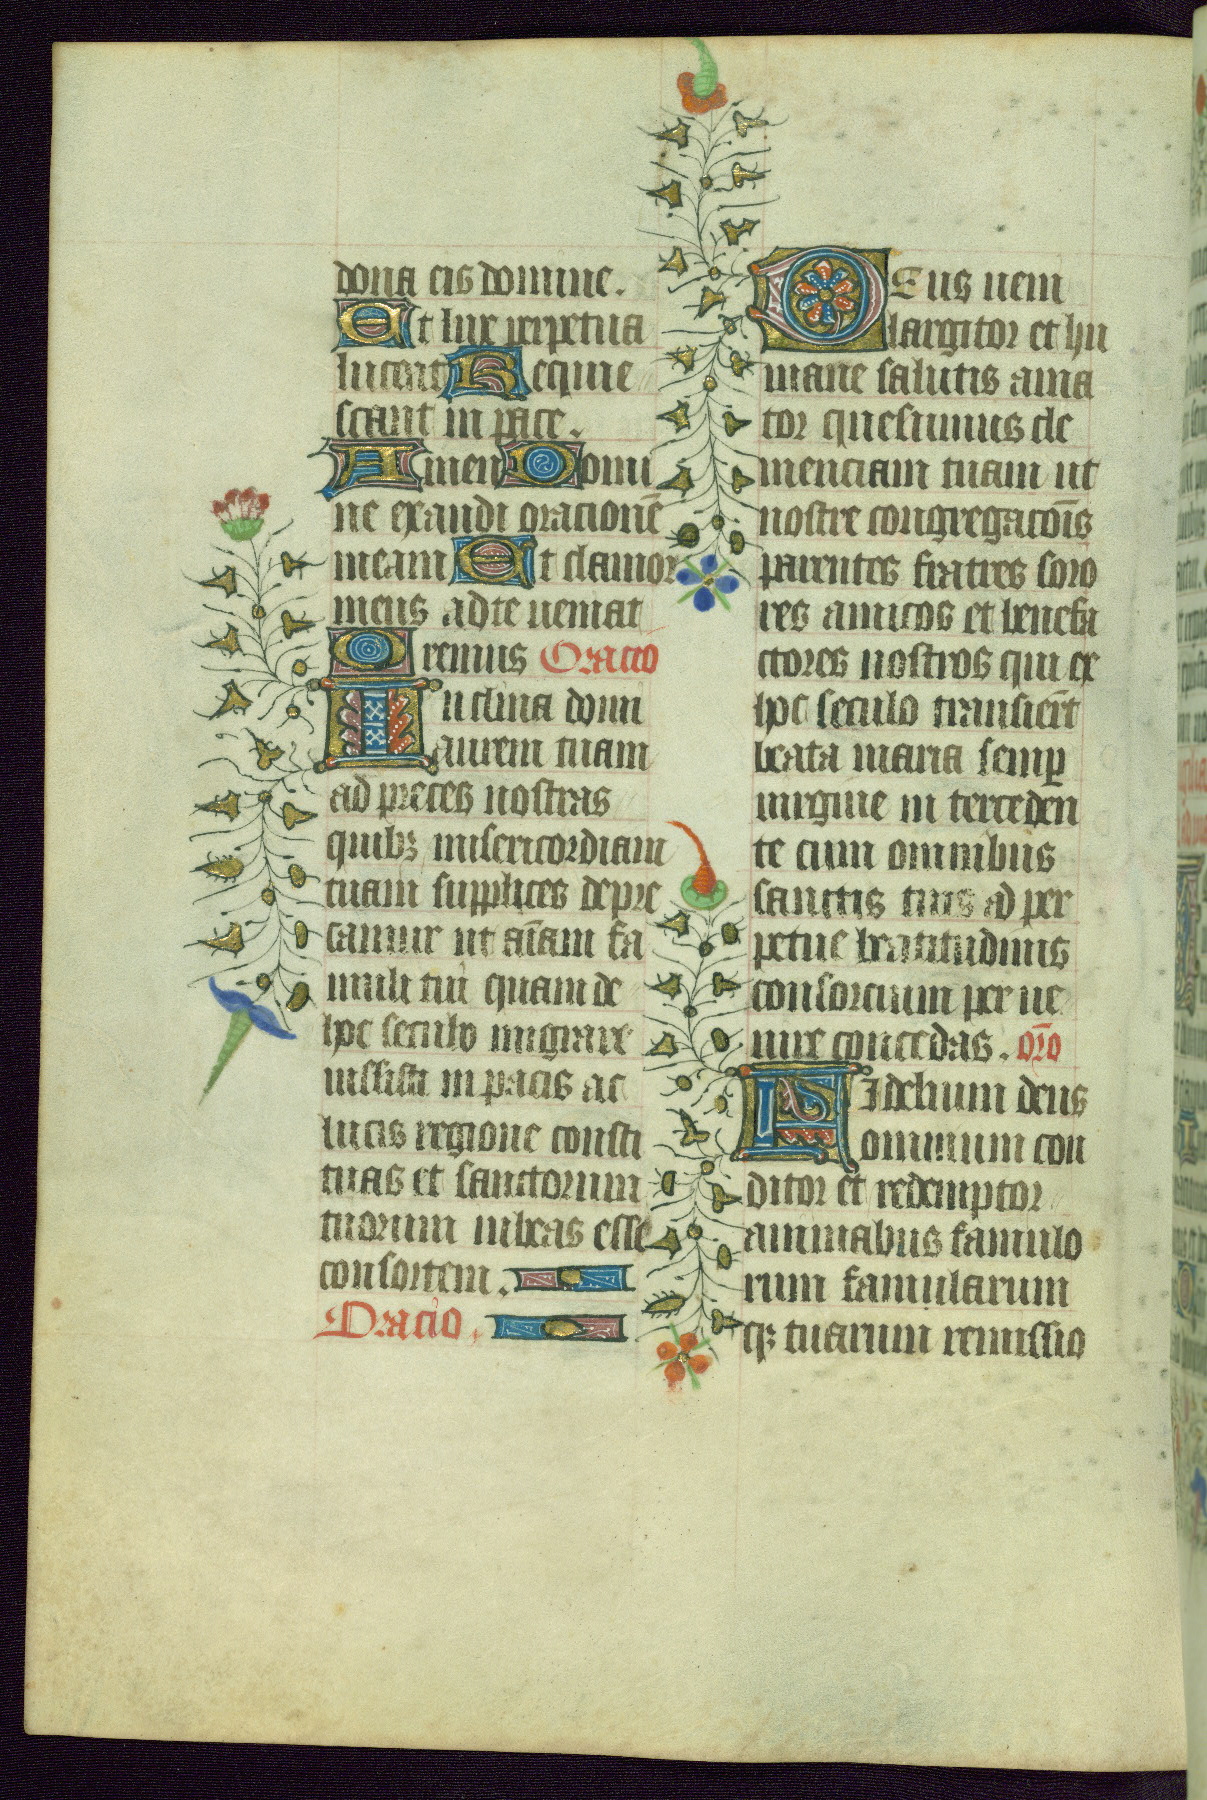 dona eis domine.
Et lux perpetua
luceat Requie
scant in pace.
Amen Domi
ne exaudi oracionē
meam Et clamor
meus ad te ueniat
Oremus Oracio
Inclina domi
aurem tuam
ad preces nostras
quibꝫ misericordiam
tuam supplices depre
camur ut aīam fa
muli tui quam de
hoc seculo migrare
iussisti in pacis ac
lucis regione consti
tuas et sanctorum
tuorum iubeas esse
consortem.
Oracio.
DEus uem
largitor et hu
mane salutis ama
tor quesumus cle
menciam tuam ut
nostre congregacōis
parentes fratres soro
res amicos et benefa
ctores nostros qui ex
hoc seculo transierūt
beata maria semꝑ
uirgine in terceden
te cum omnibus
sanctis tuis ad per
petue beatitudinis
consorcium per ue
nire concedas. oro̅
FIdelium deus
omnium con
ditor et redemptor
animabus famulo
rum famularum
qꝫ tuarum remissio